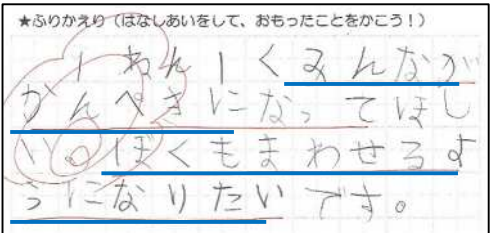 ★ふりかえり（はなしあいをして、おもったことをかこう！）
１ねん１くみんなが
かんぺきになってほし
い。ぼくもまわせるよ
うになりたいです。